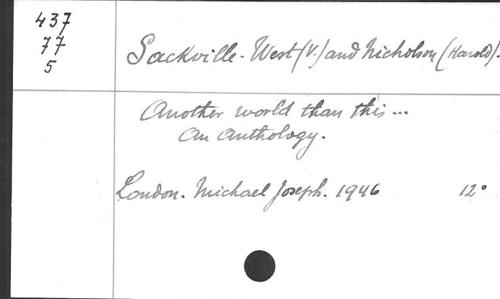 437
77
5
Sackville-West (V.) and Nicholson (Harold).
Another world than this...
An anthology.
London. Michael Joseph. 1946 12°